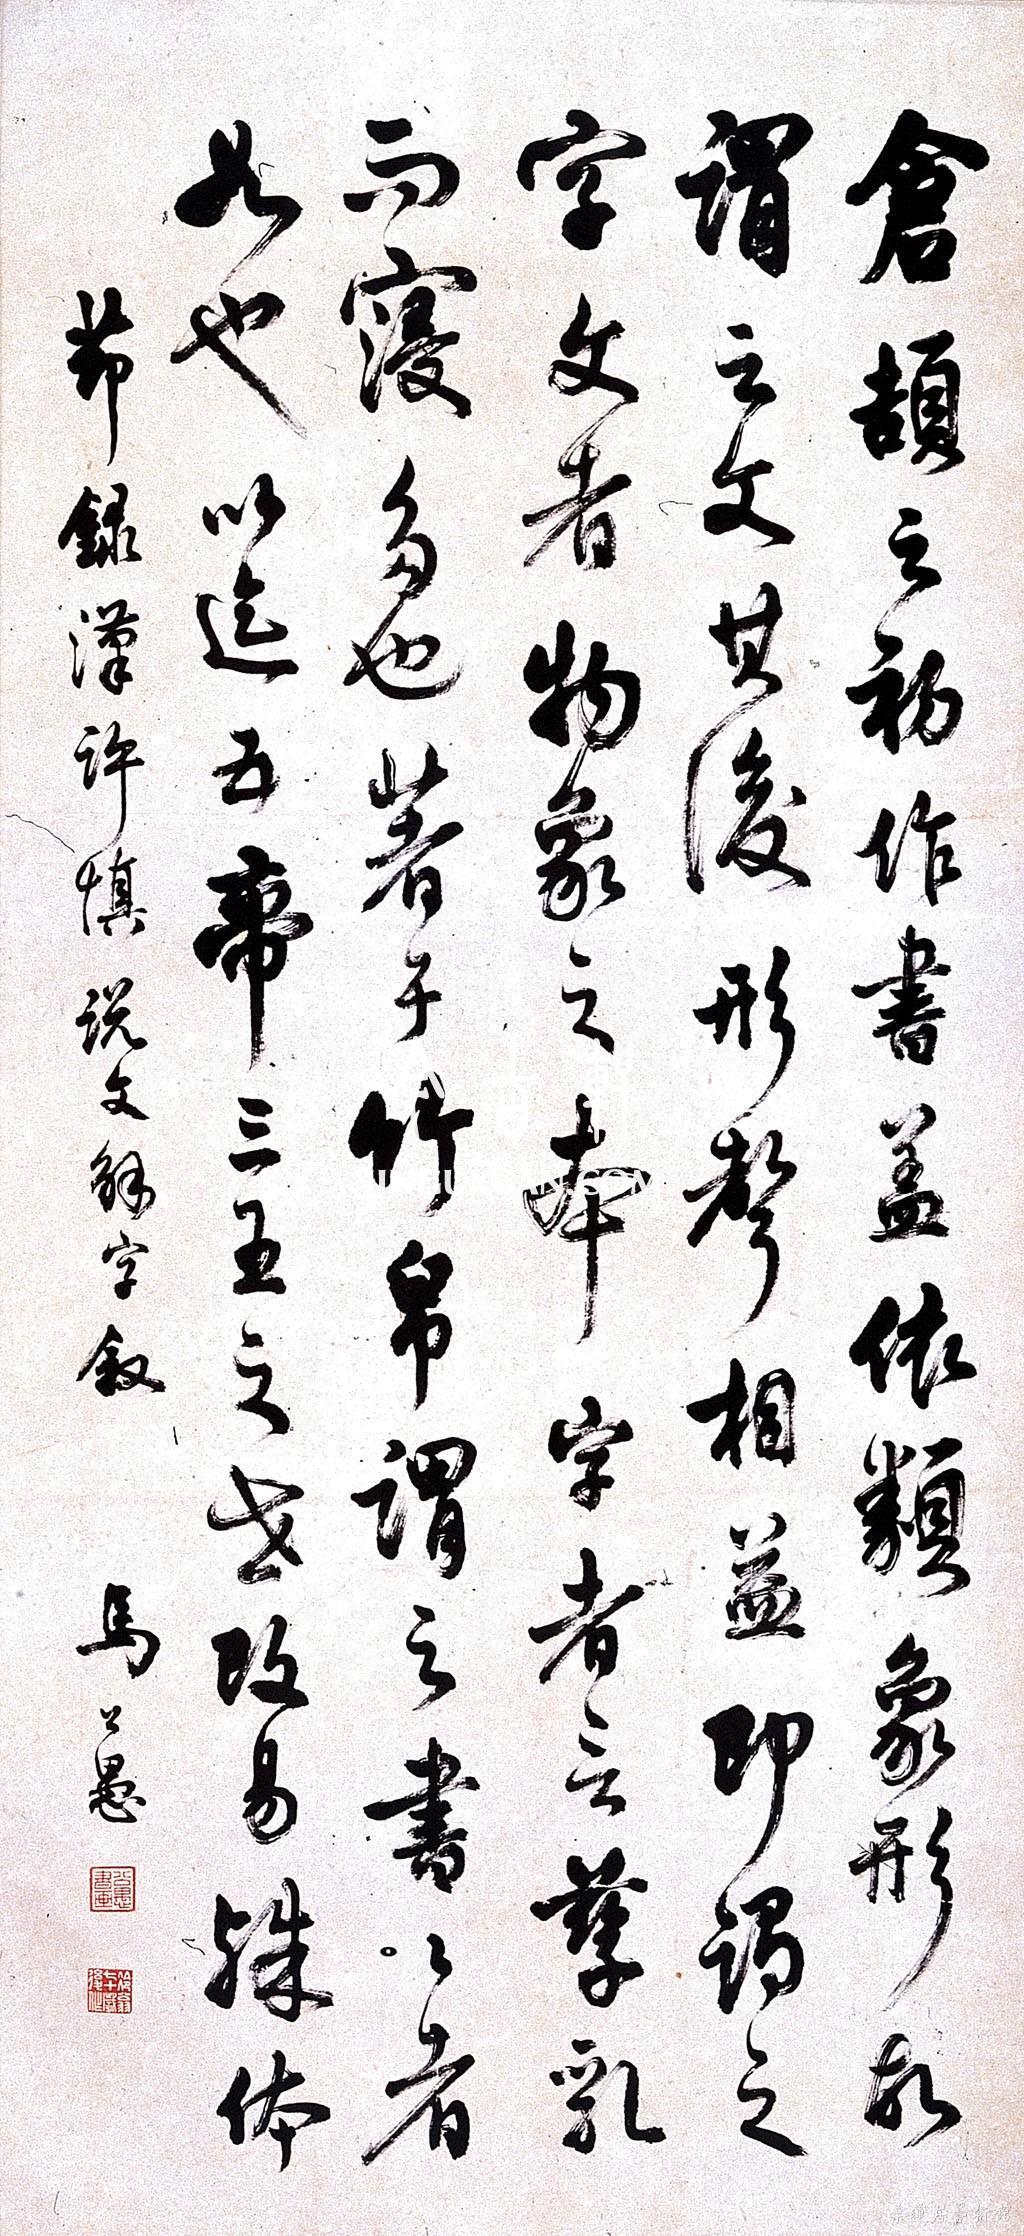 倉頡之初作書盖依類象形故
謂之文其後形聲相益即謂之
字文者物象之本字者言孳乳
而寖多也著于竹帛謂之書書者
如也以迄五帝三王之世改易殊体
节録漢許慎説文解字敘
馬公愚